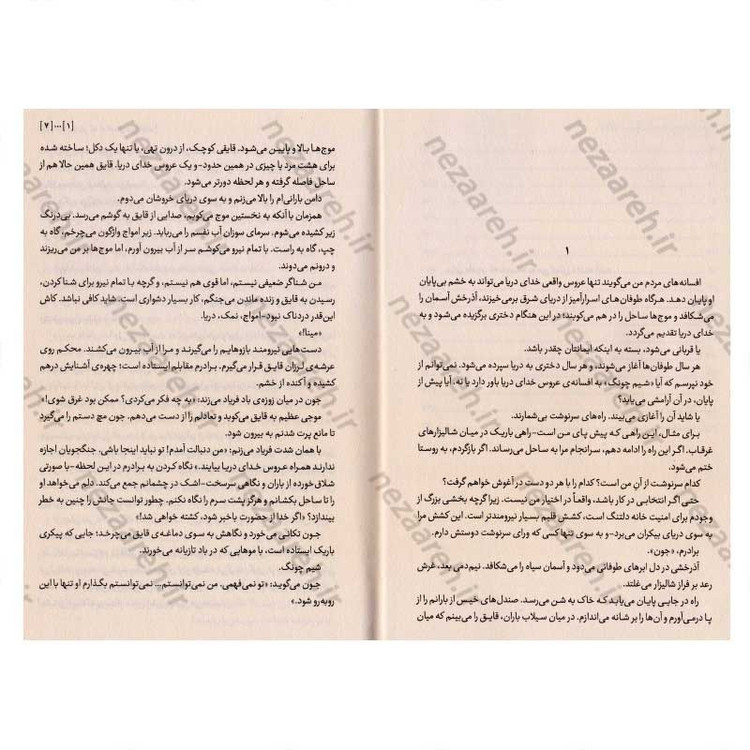 ۱
افسانه‌های مردم من می‌گویند تنها عروس واقعی خدای دریا می‌تواند به خشم بی‌پایان
او پایان دهد. هرگاه طوفان‌های اسرارآمیز از دریای شرق برمی‌خیزند، آذرخش آسمان را
می‌شکافد و موج‌ها ساحل را در هم می‌کوبند؛ در این هنگام دختری برگزیده می‌شود و به
خدای دریا تقدیم می‌گردد.
یا قربانی می‌شود، بسته به اینکه ایمانتان چقدر باشد.
هر سال طوفان‌ها آغاز می‌شوند، و هر سال دختری به دریا سپرده می‌شود. نمی‌توانم از
خود نپرسم که آیا «شیم چونگ» به افسانه‌ی عروس خدای دریا باور دارد یا نه. آیا پیش از
پایان، در آن آرامشی می‌یابد؟
یا شاید آن را آغازی می‌بیند. راه‌های سرنوشت بی‌شمارند.
برای مثال، این راهی که پیش پای من است-راهی باریک در میان شالیزارهای
غرقاب. اگر این راه را ادامه دهم، سرانجام مرا به ساحل می‌رساند. اگر بازگردم، به روستا
ختم می‌شود.
کدام سرنوشت از آنِ من است؟ کدام را با هر دو دست در آغوش خواهم گرفت؟
حتی اگر انتخابی در کار باشد، واقعاً در اختیار من نیست. زیرا گرچه بخشی بزرگ از
وجودم برای امنیت خانه دلتنگ است، کشش قلبم بسیار نیرومندتر است. این کشش مرا
به سوی دریای بیکران می‌برد-و به سوی تنها کسی که ورای سرنوشت دوستش دارم.
برادرم، «جون».
آذرخشی در دل ابرهای طوفانی می‌دود و آسمان سیاه را می‌شکافد. نیم‌دمی بعد، غرش
رعد بر فراز شالیزار می‌غلتد.
راه در جایی پایان می‌یابد که خاک به شن می‌رسد. صندل‌های خیس از بارانم را از
پا درمی‌آورم و آن‌ها را بر شانه می‌اندازم. در میان سیلاب باران، قایق را می‌بینم که میان
[۱]...[۷]
موج‌ها بالا و پایین می‌شود. قایقی کوچک، از درون تهی، با تنها یک دکل؛ ساخته شده
برای هشت مرد یا چیزی در همین حدود-و یک عروس خدای دریا. قایق همین حالا هم از
ساحل فاصله گرفته و هر لحظه دورتر می‌شود.
دامن بارانی‌ام را بالا می‌زنم و به سوی دریای خروشان می‌دوم.
همزمان با آنکه به نخستین موج می‌کوبم، صدایی از قایق به گوشم می‌رسد. بی‌درنگ
زیر کشیده می‌شوم. سرمای سوزان آب نفسم را می‌رباید. زیر امواج واژگون می‌چرخم، گاه به
چپ، گاه به راست. با تمام نیرو می‌کوشم سر از آب بیرون آورم، اما موج‌ها بر من می‌ریزند
و درونم می‌دوند.
من شناگر ضعیفی نیستم، اما قوی هم نیستم، و گرچه با تمام نیرو برای شنا کردن،
رسیدن به قایق و زنده ماندن می‌جنگم، کار بسیار دشواری است. شاید کافی نباشد. کاش
این‌قدر دردناک نبود-امواج، نمک، دریا.
«مینا!»
دست‌هایی نیرومند بازوهایم را می‌گیرند و مرا از آب بیرون می‌کشند. محکم روی
عرشه‌ی لرزان قایق قرار می‌گیرم. برادرم مقابلم ایستاده است؛ چهره‌ی آشنایش درهم
کشیده و آکنده از خشم.
جون در میان زوزه‌ی باد فریاد می‌زند: «به چه فکر می‌کردی؟ ممکن بود غرق شوی!»
موجی عظیم به قایق می‌کوبد و تعادلم را از دست می‌دهم. جون مچ دستم را می‌گیرد
تا مانع پرت شدنم به بیرون شود.
با همان شدت فریاد می‌زنم: «من دنبالت آمدم! تو نباید اینجا باشی. جنگجویان اجازه
ندارند همراه عروس خدای دریا بیایند.» نگاه کردن به برادرم در این لحظه-با صورتی
شلاق خورده از باران و نگاهی سرسخت-اشک در چشمانم جمع می‌کند. دلم می‌خواهد او
را تا ساحل بکشانم و هرگز پشت سرم را نگاه نکنم. چطور توانست جانش را چنین به خطر
بیندازد؟ «اگر خدا از حضورت باخبر شود، کشته خواهی شد!»
جون تکانی می‌خورد و نگاهش به سوی دماغه‌ی قایق می‌چرخد؛ جایی که پیکری
باریک ایستاده است، با موهایی که در باد تازیانه می‌خورند.
شیم چونگ.
جون می‌گوید: «تو نمی‌فهمی. من نمی‌توانستم... نمی‌توانستم بگذارم او تنها با این
روبه‌رو شود.»
nezaareh.ir